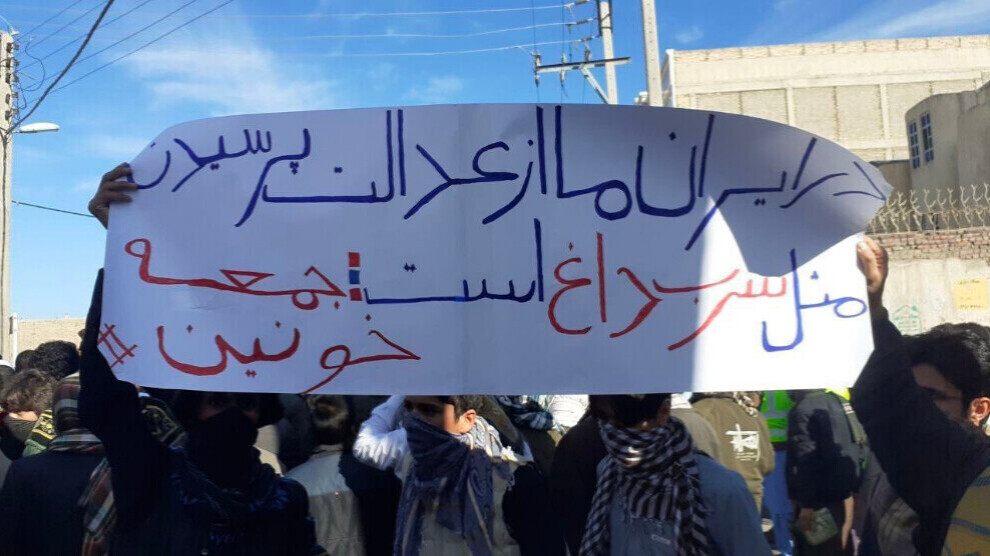 در ایران ما از عدالت پرسیدن
مثل سرب داغ است: جمعه
خونین #